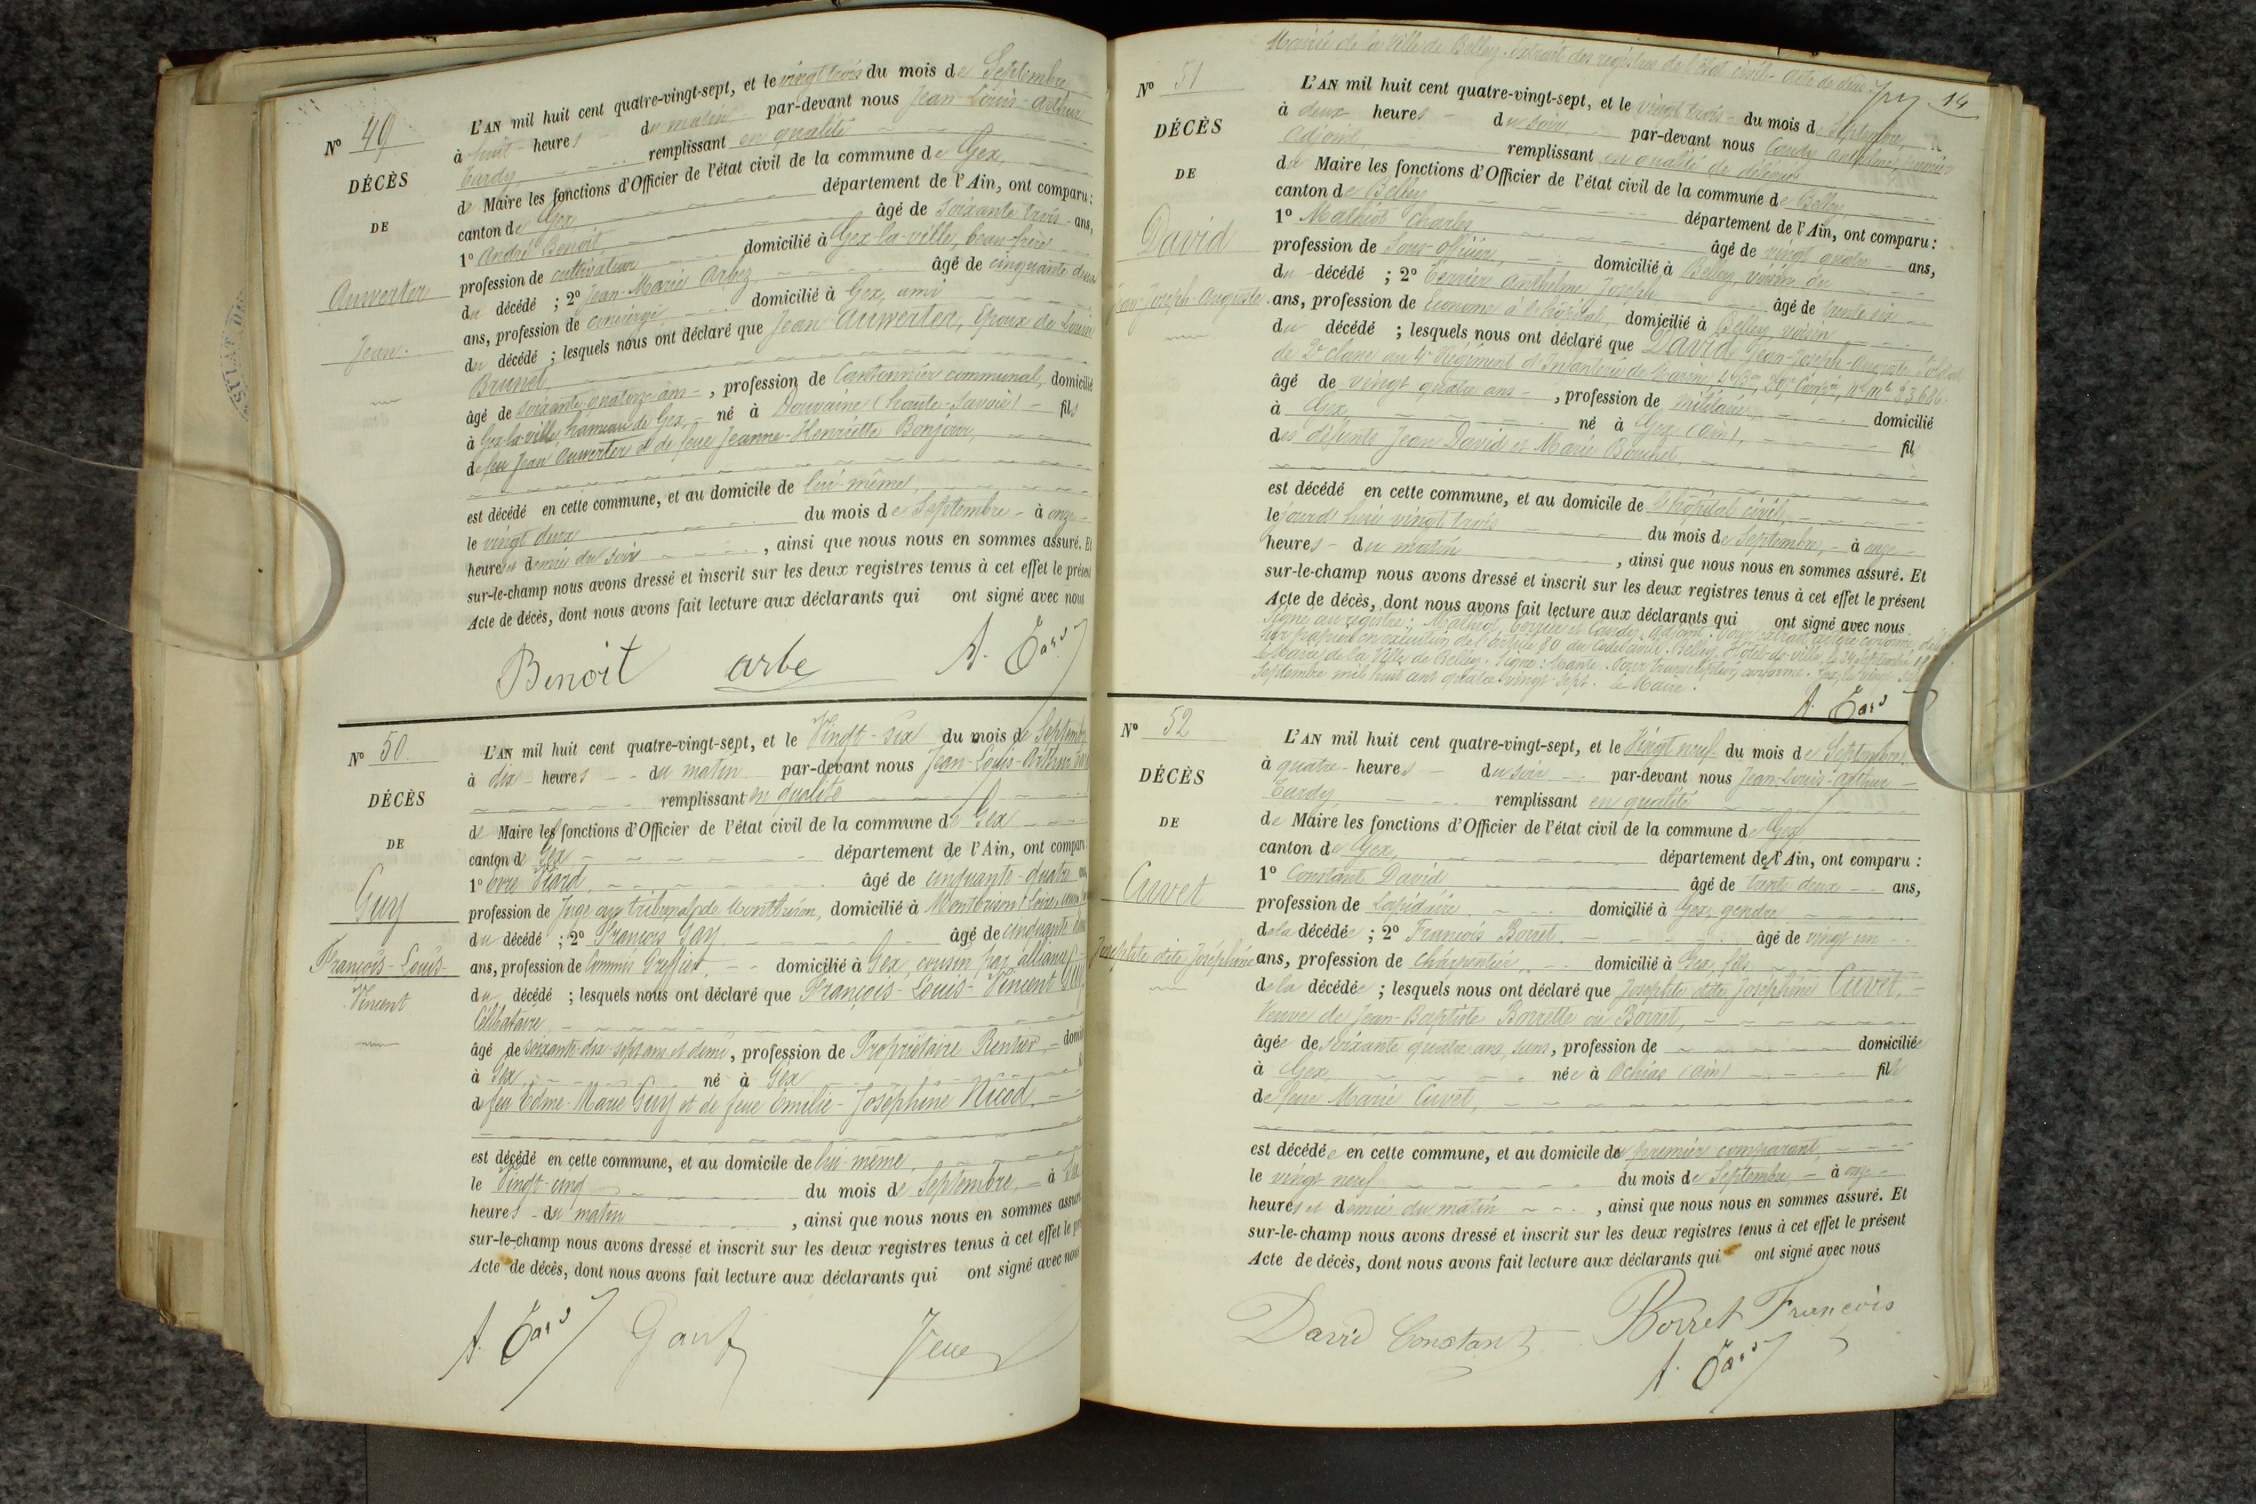 N° 49
DÉCÈS
DE
Auwerter
Jean.
L'AN mil huit cent quatre-vingt-sept, et le vingt trois du mois de Septembre,
à huit heures du matin par-devant nous Jean-Louis-Arthur
Tardy, remplissant en qualité
de Maire les fonctions d'Officier de l'état civil de la commune de Gex,
canton de Gex, département de l'Ain, ont comparu :
1° André Benoit, âgé de soixante trois ans,
profession de cultivateur domicilié à Gex-la-ville, beau-frère
du décédé ; 2° Jean-Marie Arbez âgé de cinquante deux
ans, profession de concierge domicilié à Gex, ami
du décédé ; lesquels nous ont déclaré que Jean Auwerter, époux de Louise
Brunet,
âgé de soixante quatorze ans, profession de Cantonnier communal, domicilié
à Gex-la-ville, hameau de Gex, né à Douvaine (haute-Savoie) fils
de feu Jean Auwerter et de feue Jeanne-Henriette Bonjour,
est décédé en cette commune, et au domicile de lui-même,
le vingt deux du mois de Septembre à onze
heures et demie du soir, ainsi que nous nous en sommes assuré. Et
sur-le-champ nous avons dressé et inscrit sur les deux registres tenus à cet effet le présent
Acte de décès, dont nous avons fait lecture aux déclarants qui ont signé avec nous
Benoit arbe A. Tardy
N° 50.
DÉCÈS
DE
Guy
François-Louis-
Vincent
L'AN mil huit cent quatre-vingt-sept, et le Vingt-six du mois de Septembre
à dix heures du matin par-devant nous Jean-Louis-Arthur
remplissant en qualité
de Maire les fonctions d'Officier de l'état civil de la commune de Gex
canton de Gex département de l'Ain, ont comparu
1° âgé de cinquante-quatre
profession de Juge au tribunal de Montbrison, domicilié à Montbrison (Loire),
du décédé ; 2° François Gay âgé de cinquante
ans, profession de Commis Greffier, domicilié à Gex, cousin par alliance
du décédé ; lesquels nous ont déclaré que François-Louis-Vincent Guy,
Célibataire,
âgé de soixante-dix-sept ans et demi, profession de Propriétaire Rentier, domi
à Gex né à Gex
de feu Edme-Marie Guy et de feue Emilie-Joséphine Nicod,
est décédé en cette commune, et au domicile de lui-même,
le Vingt-cinq du mois de Septembre, à
heures du matin, ainsi que nous nous en sommes assuré
sur-le-champ nous avons dressé et inscrit sur les deux registres tenus à cet effet le pré
Acte de décès, dont nous avons fait lecture aux déclarants qui ont signé avec nous
A. Tardy
Mairie de la Ville de Belley. Extrait des registres de l'Etat civil. Acte de décès.
14
N° 51
DÉCÈS
DE
David
Jean-Joseph-Auguste.
L'AN mil huit cent quatre-vingt-sept, et le vingt trois du mois de Septembre,
à deux heures du soir par-devant nous Anthelme, premier
adjoint, remplissant en qualité de délégué
du Maire les fonctions d'Officier de l'état civil de la commune de Belley
canton de Belley département de l'Ain, ont comparu :
1° Mathiot Charles âgé de vingt quatre ans,
profession de Sous-officier, domicilié à Belley, voisin du
du décédé ; 2° Anthelme Joseph âgé de trente six
ans, profession de économe à l'hôpital, domicilié à Belley, voisin
du décédé ; lesquels nous ont déclaré que David Jean-Joseph-Auguste Soldat
de 2e classe au 4e Régiment d'Infanterie de Marine
âgé de vingt quatre ans, profession de militaire, domicilié
à Gex, né à Gex (Ain), fils
des défunts Jean David et Marie Bouchet,
est décédé en cette commune, et au domicile de l'hôpital civil,
le jourd'hui vingt trois du mois de Septembre, à onze
heures du matin, ainsi que nous nous en sommes assuré. Et
sur-le-champ nous avons dressé et inscrit sur les deux registres tenus à cet effet le présent
Acte de décès, dont nous avons fait lecture aux déclarants qui ont signé avec nous
Signé au registre : Mathiot
en exécution de l'article 80 du Code civil. Belley, Hôtel-de-Ville, le 24 Septembre
le Maire de la Ville de Belley. Signé :
Septembre mil huit cent quatre vingt-sept. le Maire.
A. Tardy
N° 52
DÉCÈS
DE
Cuvet
Josephte dite Joséphine
L'AN mil huit cent quatre-vingt-sept, et le Vingt neuf du mois de Septembre
à quatre heures du soir par-devant nous Jean-Louis-Arthur
Tardy remplissant en qualité
de Maire les fonctions d'Officier de l'état civil de la commune de Gex
canton de Gex, département de l'Ain, ont comparu :
1° Constant David âgé de trente deux ans,
profession de Lapidaire domicilié à Gex, gendre
de la décédée ; 2° François Borret âgé de vingt un
ans, profession de charpentier, domicilié à Gex, fils
de la décédée ; lesquels nous ont déclaré que Josephte dite Joséphine Cuvet,
Veuve de Jean-Baptiste Borrette ou Borret,
âgée de soixante quatre ans, sans, profession de domiciliée
à Gex née à Ochiaz (Ain) fille
de feue Marie Cuvet,
est décédée en cette commune, et au domicile du premier comparant,
le vingt neuf du mois de Septembre à onze
heures et demie du matin, ainsi que nous nous en sommes assuré. Et
sur-le-champ nous avons dressé et inscrit sur les deux registres tenus à cet effet le présent
Acte de décès, dont nous avons fait lecture aux déclarants qui ont signé avec nous
David Constant Borret François
A. Tardy